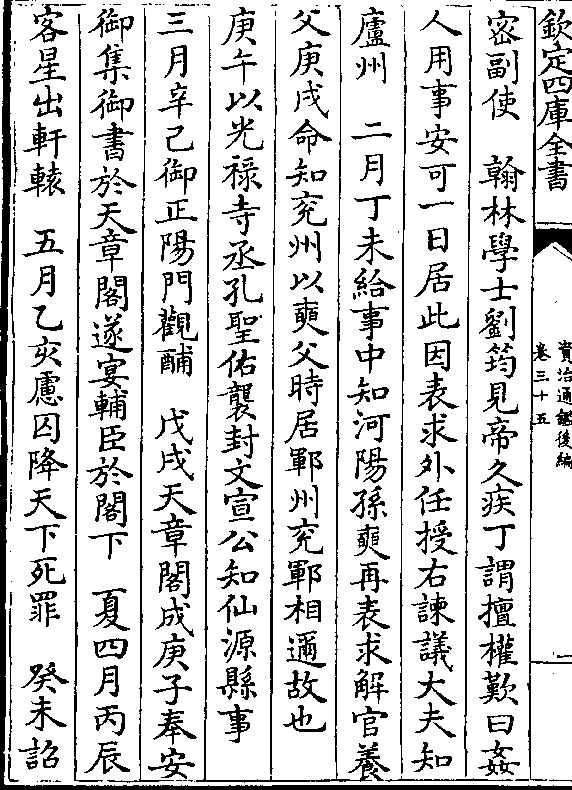 欽定四庫全書
資治通鑑後編
卷三十五
一
宻副使　翰林學士劉筠見帝久疾丁謂擅權歎曰姦
人用事安可一日居此因表求外任授右諫議大夫知
廬州　二月丁未給事中知河陽孫奭再表求解官養
父庚戌命知兖州以奭父時居鄆州兖鄆相邇故也
庚午以光禄寺丞孔聖佑襲封文宣公知仙源縣事
三月辛己御正陽門觀酺　戊戌天章閣成庚子奉安
御集御書於天章閣遂宴輔臣於閣下　夏四月丙辰
客星出軒轅　五月乙亥慮囚降天下死罪　癸未詔